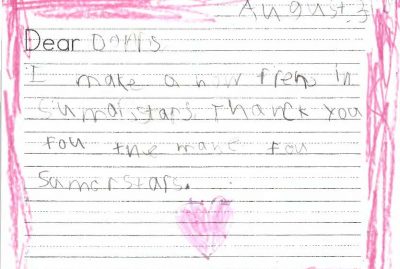 August 3
Dear
I make a new frens in
Sumairstars Thanck you
fou the make fou
Samorstars.